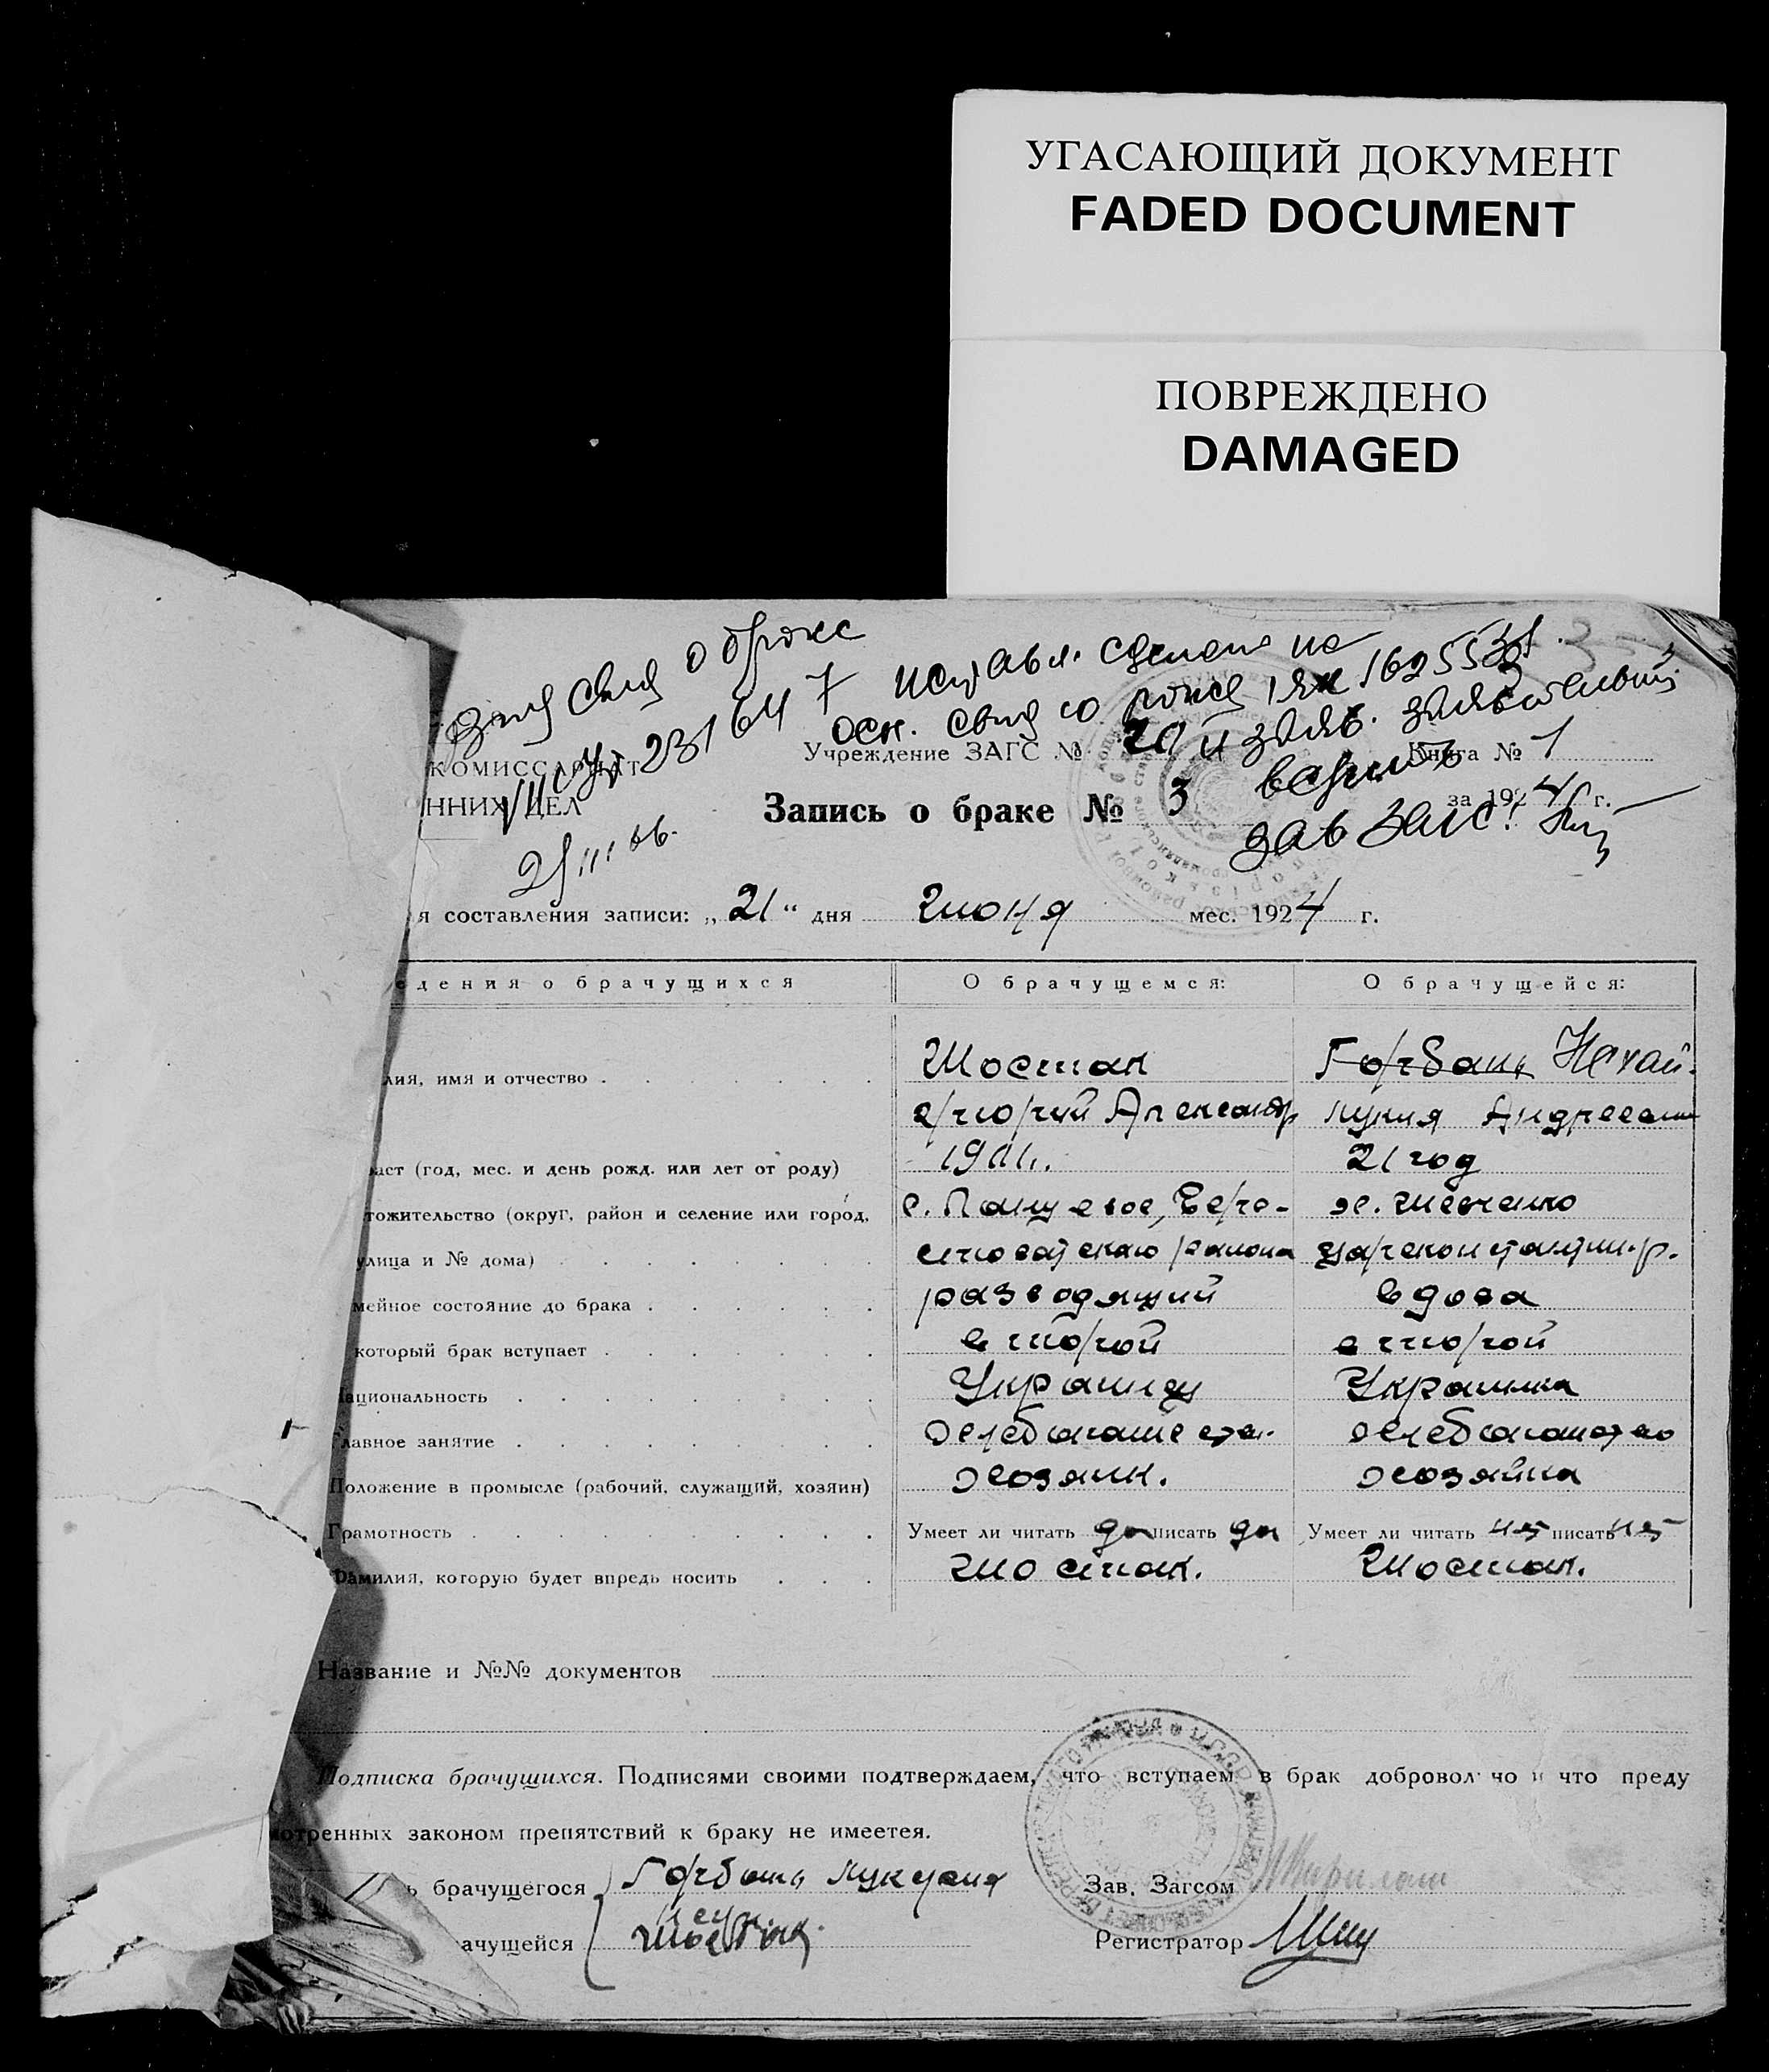 УГАСАЮЩИЙ ДОКУМЕНТ
FADED DOCUMENT
ПОВРЕЖДЕНО
DAMAGED
о браке
231647 исправл. сделано на
осн. свид о рожд 1625538
КОМИССАРИАТ
ННИХ ДЕЛ
Учреждение ЗАГС №
Книга № 1
Запись о браке № 3
за 1924 г.
зав загс:
я составления записи: „21“ дня Июня мес. 1924 г.
едения о брачущихся
О брачущемся:
О брачущейся:
лия, имя и отчество
Шостак
Горбань Нехай
Григорий Александр
Лукия Андреевна
аст (год, мес. и день рожд. или лет от роду)
1901
21 год
тожительство (округ, район и селение или город,
х. Шевченко
улица и № дома)
района
мейное состояние до брака
разводящий
вдова
который брак вступает
второй
второй
ациональность
Украинец
Украинка
Главное занятие
хлебопашество
хлебопашество
Положение в промысле (рабочий, служащий, хозяин)
хозяин.
хозяйка
Грамотность
Умеет ли читать да писать да
Умеет ли читать нет писать нет
Фамилия, которую будет впредь носить
Шостак.
Шостак.
Название и №№ документов
Подписка брачущихся. Подписями своими подтверждаем, что вступаем в брак добровольно и что преду
мотренных законом препятствий к браку не имеетея.
ь брачущегося Горбань
Зав. Загсом
ачущейся
Регистратор